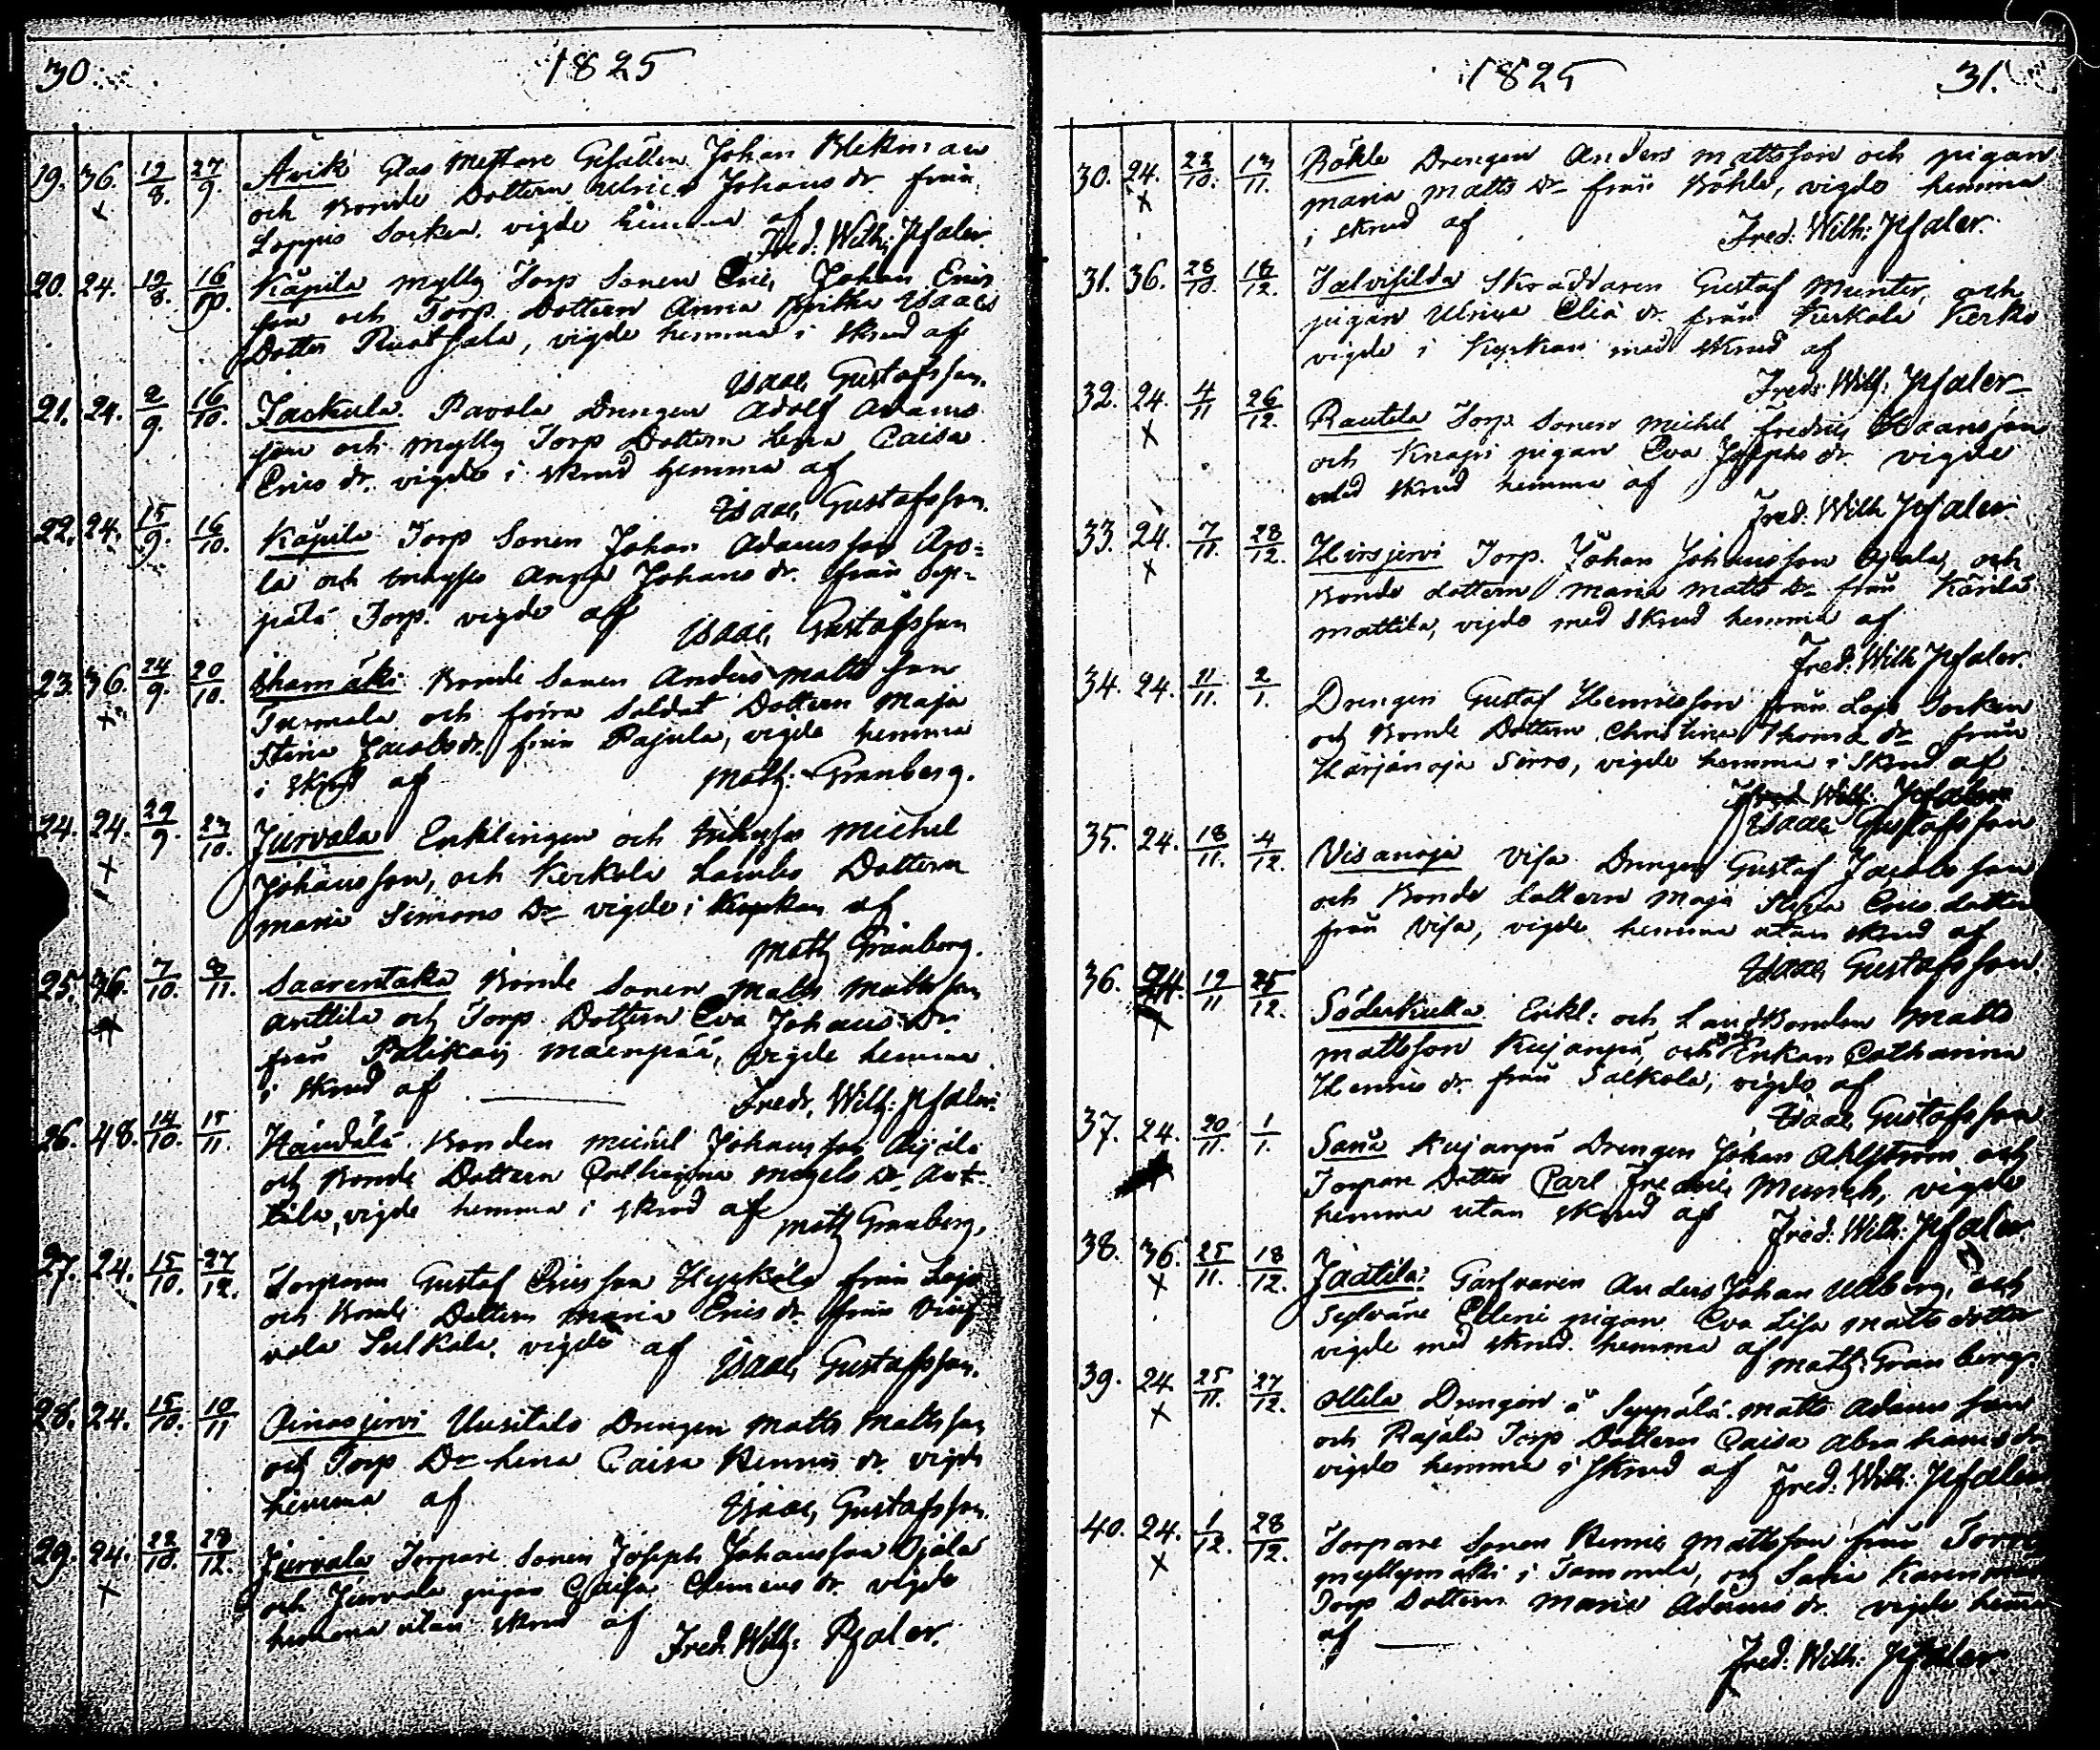 30. 1825
19. 36. 19/8. 27/9 Åvik Glas Mestare Gesällen Johan Blekman
x och Bonde Dottern Ulrica Johans dr. från
Loppis Socken. vigde hemma af
Fred: Wilh: Pfaler.
20. 24. 19/8. 16/10. Käpilä Mylly Torp Sonen Eric Johan Erics
son och Torp. Dottern Anna Brita Isaacs
Dotter Ruotsala, vigde hemma i skrud af
Isaac Gustafsson.
21. 24. 2/9. 16/10. Jackula Pavola Drengen Adolf Adams
son och Mylly Torp Dottern Lena Caisa
Erics dr. vigde i skrud hemma af
Isaac Gustafsson.
22. 24. 15/9. 16/10. Käpilä Torp Sonen Johan Adamsson
la och Anna Johans dr. från Sep-
pälä Torp. vigde af
Isaac Gustafsson
23. 36. 24/9. 20/10. Bonde Sonen Anders Matts son
x och förra Soldat Dottern Maja
Stina Jacobs dr. från Pajula, vigde hemma
i skrud af Math: Granberg.
24. 24. 29/9. 23/10. Jurvala Enklingen och Michel
x Johansson, och Kerkola Lambo Dottern
Maria Simons Dr vigde i Kyrkan af
Math Granberg.
25. 36. 7/10. 8/11. Saarentaka Bonde Sonen Matts Mattsson
x Anttila och Torp Dottern Eva Johans Dr.
från Mäenpää, vigde hemma
i skrud af Fredr. Wilh: Pfaler.
26. 48. 14/10. 15/11. Bonden Michel Johansson
och Bonde Dottern Catharina Dr. Ant-
tila, vigde hemma i skrud af Math Granberg.
27. 24. 15/10. 27/12. Torparen Gustaf Ericsson från Lojo
och Bonde Dottern Maria Erics dr. från
vala Sulkala, vigde af
Isaac Gustafsson.
28. 24. 15/10. 10/11 Uusitalo Drengen Matts Mattsson
och Torp Dr Lena Caisa Henrics dr. vigde
hemma af Isaac Gustafsson.
29. 24. 22/10. 28/12. Jurvala Torpare Sonen Joseph Johansson Ojala
x och Jurvala pigan Caisa Clemens dr. vigde
hemma utan skrud af
Fred. Wilh: Pfaler.
1825 31.
30. 24. 22/10. 13/11. Böhle Drengen Anders Mattsson och pigan
x Maria Matts Dr från Böhle, vigde hemma
i skrud af Fred: Wilh: Pfaler.
31. 36. 28/10. 18/12. Skräddaren Gustaf Munter, och
pigan Ulrica Eliæ dr. från Kerkola
vigde i Kyrkan med skrud af
Fred: Wilh: Pfaler
32. 24. 4/11 26/12. Rautela Torp. Sonen Michel Fredric
x och Knapi pigan Eva Josephs dr. vigde
med skrud hemma af
Fred: Wilh Pfaler.
33. 24. 7/11. 28/12. Hirsjervi Torp. Johan Johansson Ojala, och
x Bonde dottern Maria Matts dr från Kärilä
Mattila, vigde med skrud hemma af
Fred: Wilh Pfaler.
34. 24. 11/11. 2/1. Drengen Gustaf Henricsson från Lojo Socken
och Bonde Dottern Christina Thomæ dr från
Härjänoja Sirro, vigde hemma i Skrud af
Fred Wilh: Pfaler
Isaac Gustafsson
35. 24. 18/11. 4/12. Visanoja Visa Drengen Gustaf Jacobsson
och Bonde dottern Maja Stina Erics dotter
från Visa, vigde hemma utan skrud af
Isaac Gustafsson.
36. 24. 19/11 25/12. Söderkulla Enkl: och Landbonden Matts
x Mattsson Kujanpä, och Enkan Catharina
Henrics dr. från Salkola, vigde af
Isaac Gustafsson
37. 24. 20/11. 1/1. Kujanpä Drengen Johan Ahlström och
Torpare Dotter Carl Fredric Munck, vigde
hemma utan skrud af Fred: Wilh: Pfaler.
38. 36. 25/11. 18/12. Jaatila: Garfvaren Anders Johan Ullberg, och
x pigan Eva Lisa Matts dotter
vigde med skrud. hemma af Math: Granberg.
39. 24. 25/11. 27/12. Ottila Drengen å Seppälä Matts Adamsson
x och Rajala Torp Dottern Caisa Abrahams dr
vigde hemma i skrud af Fred: Wilh: Pfaler.
40. 24. 1/12. 28/12. Torpare Sonen Henric Mattsson från
x Myllymäki i Tammela, och
Torp Dottern Maria Adams dr. vigde hemma
af Fred: Wilh: Pfaler